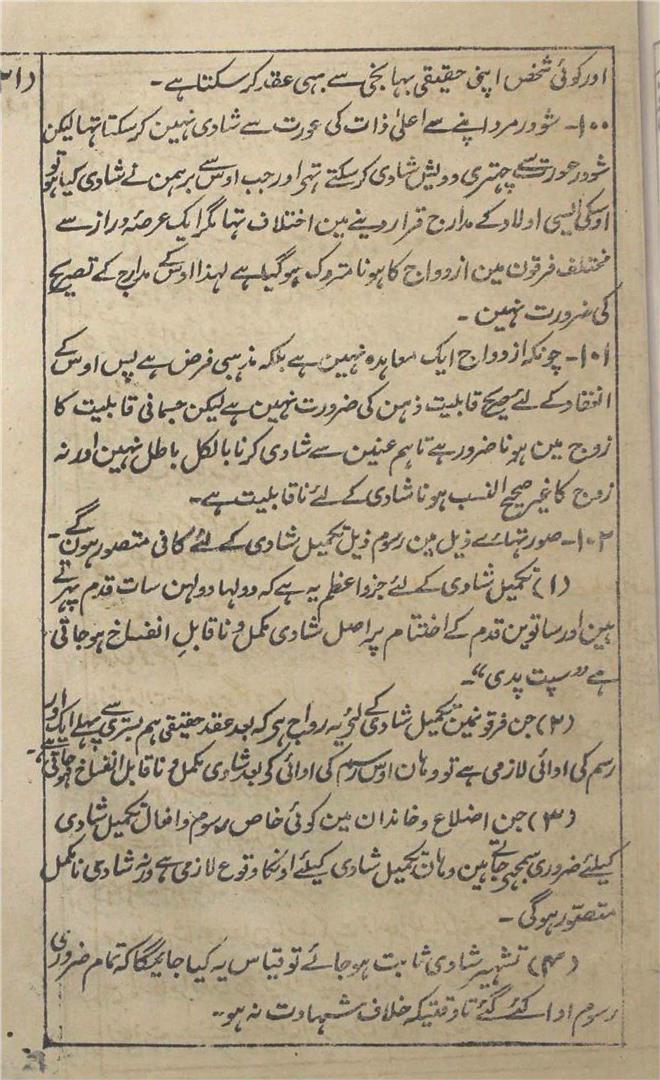 اور کوئی شخص اپنی حقیقی بہانجی سے بہی عقد کر سکتا ہے ۔
(۲۱
۱۰۰۔ شودر مرد اپنے سے اعلیٰ ذات کی عورت سے شادی نہین کر سکتا تہا لیکن
شودر عورت سے چہتری و ویش شادی کر سکتے تہے اور جب اوس سے برہمن نے شادی کیا ہو تو
اوسکی ایسی اولاد کے مدارج قرار دینے مین اختلاف تہا مگر ایک عرصۂ دراز سے
مختلف فرقون مین ازدواج کا ہونا متروک ہو گیا ہے لہذا اوس کے مدارج کے تصریح
کی ضرورت نہین ۔
۱۰۱۔ چونکہ ازدواج ایک معاہدہ نہین ہے بلکہ مذہبی فرض ہے پس اوس کے
انعقاد کے لئے صحیح قابلیت ذہن کی ضرورت نہین ہے لیکن جسمانی قابلیت کا
زوج مین ہونا ضرور ہے تاہم عنین سے شادی کرنا بالکل باطل نہین اور نہ
زوج کا غیر صحیح النسب ہونا شادی کے لئے ناقابلیت ہے ۔
۱۰۲۔ صورتہاے ذیل مین رسوم ذیل تکمیل شادی کے لئے کافی متصور ہون گے ۔
(۱) تکمیل شادی کے لئے جزو اعظم یہ ہے کہ دولہا دولہن سات قدم پہرتے
ہین اور ساتوین قدم کے اختتام پر اصل شادی مکمل و ناقابل انفساخ ہو جاتی
ہے ”سپت پدی“ ۔
(۲) جن فرقونمین تکمیل شادی کے لئے یہ رواج ہی کہ بعد عقد حقیقی ہم بستری سے پہلے ایک اور
رسم کی ادائی لازمی ہے تو وہان اوس رسم کی ادائی کے بعد شادی مکمل و ناقابل انفساخ ہو جاتی ہے ۔
(۳) جن اضلاع و خاندان مین کوئی خاص رسوم و افعال تکمیل شادی
کیلئے ضروری سمجہے جاتے ہین وہان تکمیل شادی کیلئے اونکا وقوع لازمی ہے ورنہ شادی نامکمل
متصوّر ہوگی ۔
(۴) تشہیر شادی ثابت ہو جائے تو قیاس یہ کیا جائیگا کہ تمام ضروری
رسوم ادا کئے گئے تاوقتیکہ خلاف شہادت نہ ہو ۔